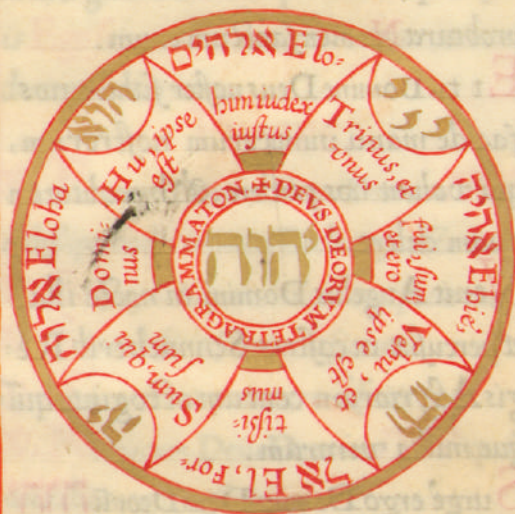 אלהים Elo-
him iudex
iustus
ייי
Trinus, et
vnus
אהיה Ehie,
fui, sum
et ero
והו
Vehu, et
ipse est
אל El, For-
tißi-
mus
Sum, qui
sum
אלוה Eloha
Domi-
nus
הוא
Hu, ipse
est
✠ DEVS DEORVM TETRAGRAMMATON.
יהוה